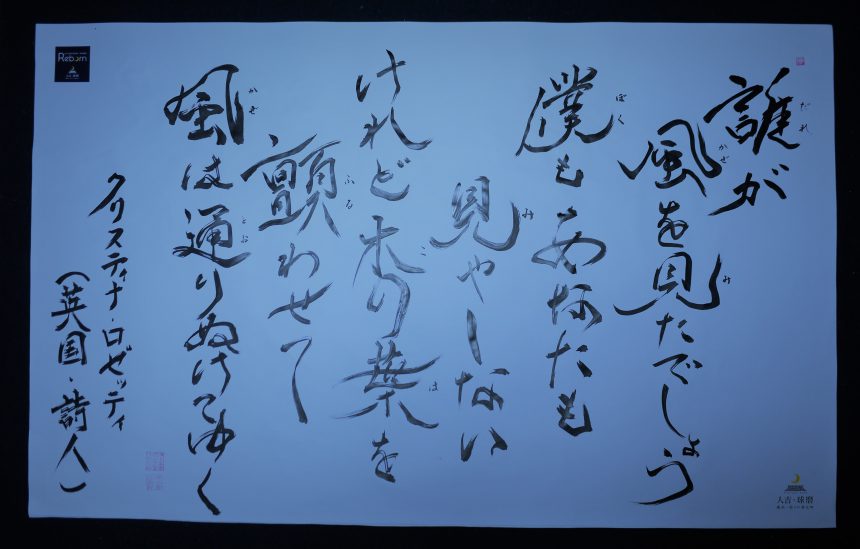 誰が
風を見たでしょう
僕もあなたも
見やしない
けれど木の葉を
顫わせて
風は通りぬけてゆく
クリスティナ・ロゼッティ
(英国・詩人)
だれ
かぜ
み
ぼく
み
こ
は
ふる
かぜ
とお
Reborn
人吉・球磨